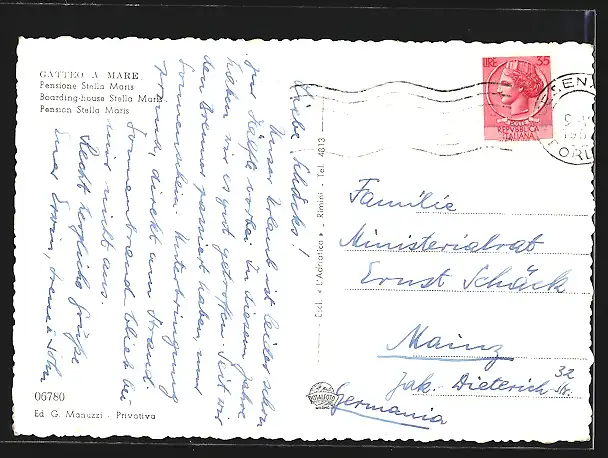 GATTEO A MARE
Pensione Stella Maris
Boarding-house Stella Maris
Pension Stella Maris
Liebe Schäcks!
Unser Urlaub ist leider schon
zur Hälfte vorbei. In diesem Jahre
haben wir es gut getroffen. Seit wir
den Brenner passiert haben, nur
Sonnenschein. Unterbringung
prima, direkt am Strand.
Sonnenbrand blieb bei
mir nicht aus.
Recht herzliche Grüße
Euer Erwin, Irene u. Sohn
06780
Ed. G. Manuzzi - Privativa
Escl. « L'Adriatica » - Rimini - Tel. 4813
LIRE 35
REPVBBLICA
ITALIANA
Familie
Ministerialrat
Ernst Schäck
Mainz
Jak. Dieterich-Str. 32
Germania